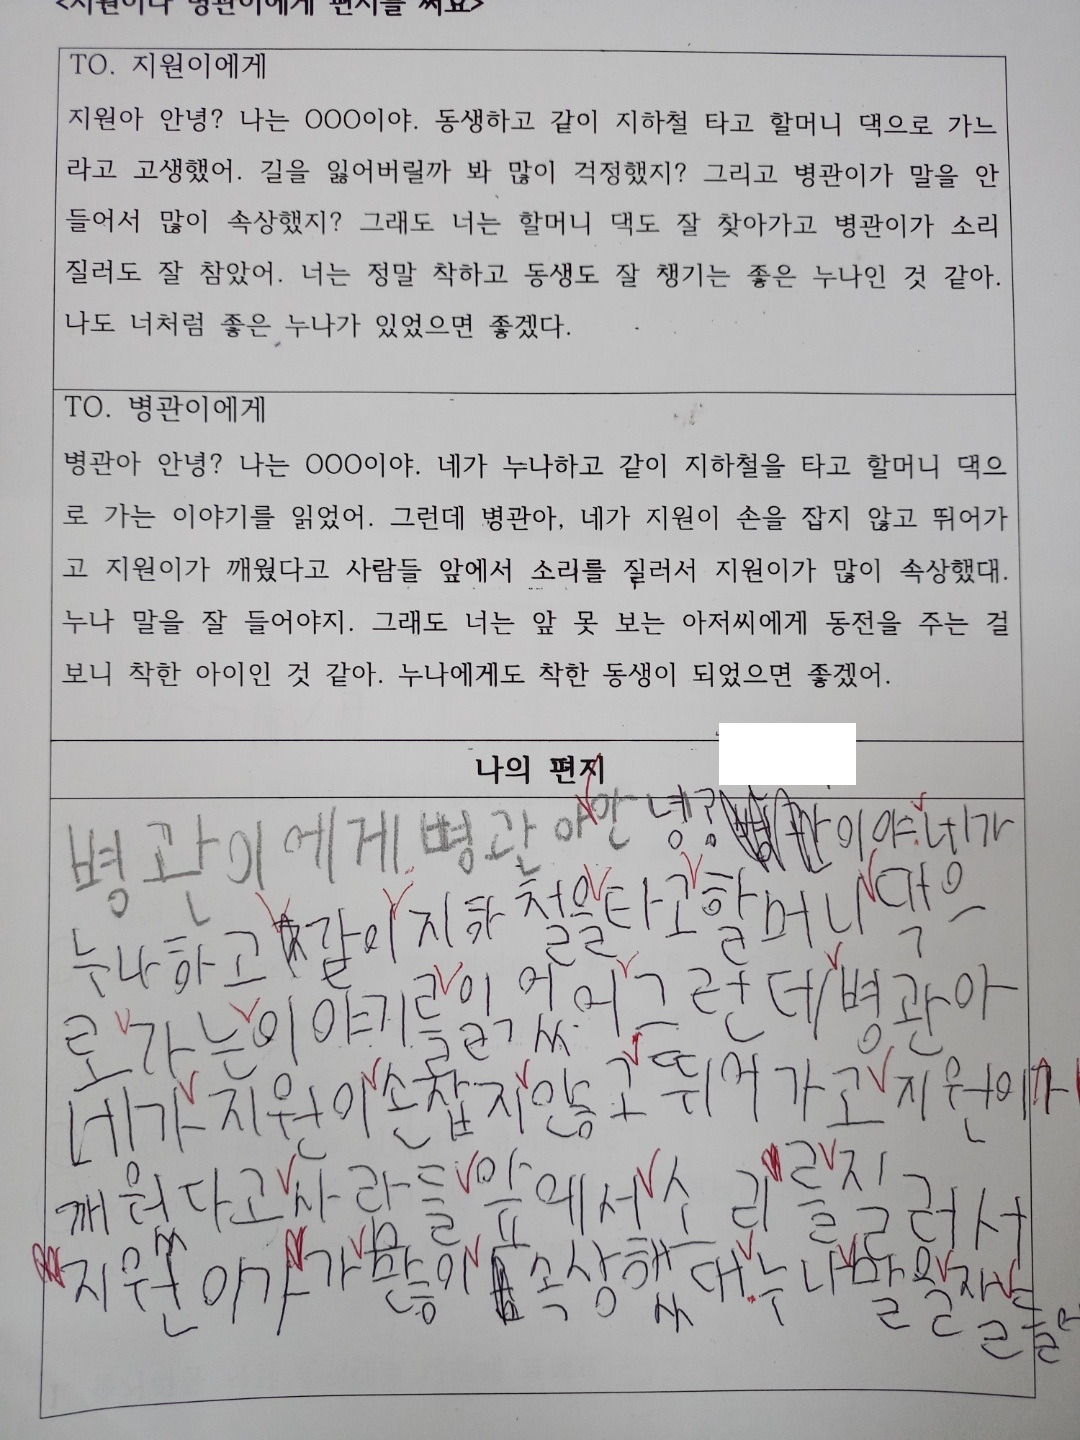 <지원이나 병관이에게 편지를 써요>
TO. 지원이에게
지원아 안녕? 나는 OOO이야. 동생하고 같이 지하철 타고 할머니 댁으로 가느
라고 고생했어. 길을 잃어버릴까 봐 많이 걱정했지? 그리고 병관이가 말을 안
들어서 많이 속상했지? 그래도 너는 할머니 댁도 잘 찾아가고 병관이가 소리
질러도 잘 참았어. 너는 정말 착하고 동생도 잘 챙기는 좋은 누나인 것 같아.
나도 너처럼 좋은 누나가 있었으면 좋겠다.
TO. 병관이에게
병관아 안녕? 나는 OOO이야. 네가 누나하고 같이 지하철을 타고 할머니 댁으
로 가는 이야기를 읽었어. 그런데 병관아, 네가 지원이 손을 잡지 않고 뛰어가
고 지원이가 깨웠다고 사람들 앞에서 소리를 질러서 지원이가 많이 속상했대.
누나 말을 잘 들어야지. 그래도 너는 앞 못 보는 아저씨에게 동전을 주는 걸
보니 착한 아이인 것 같아. 누나에게도 착한 동생이 되었으면 좋겠어.
나의 편지
병관이에게 병관아안녕? 이야.네가
누나하고 같이지하철을타고할머니댁으
로가는이야기를읽었어그런데병관아
네가지원이손잡지않고뛰어가고지원이가
깨웠다고사람들앞에서소리를질러서
지원이가많이속상했대.누나말을잘들어